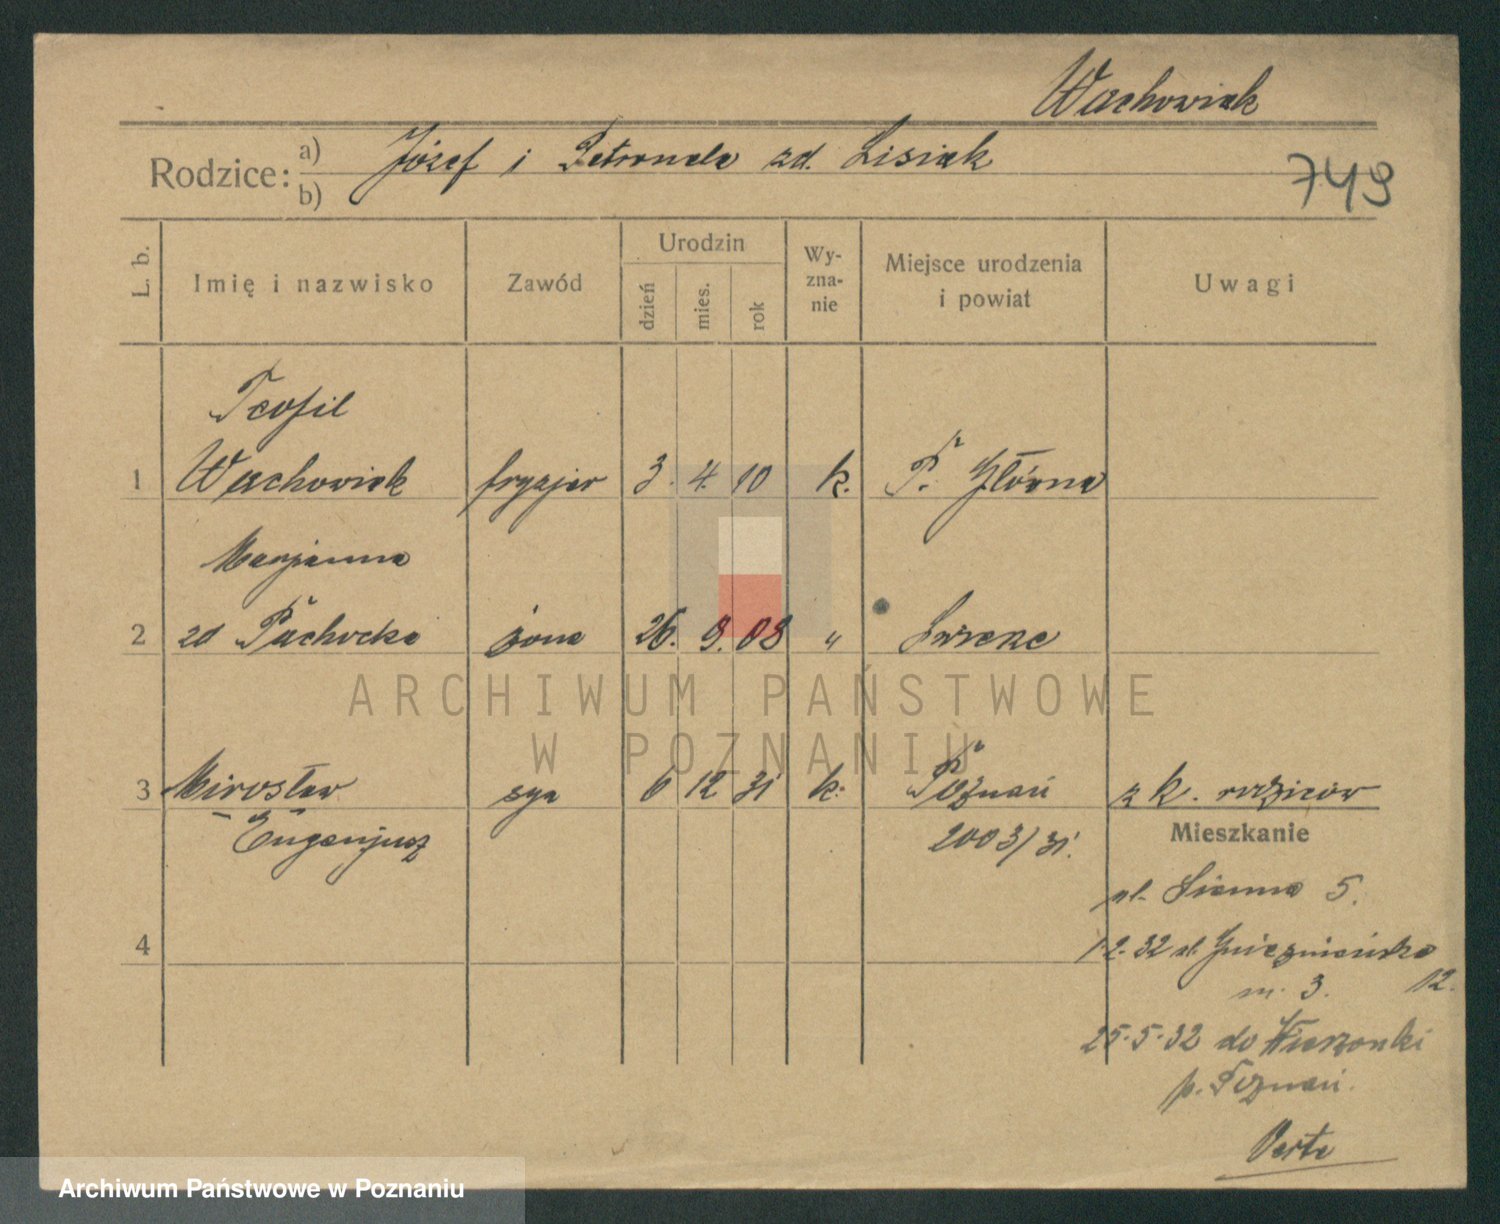 Wachowiak
Rodzice: a) Józef i Petronela zd. Lisiak
b)
749
L. b.
Imię i nazwisko
Zawód
Urodzin
dzień
mies.
rok
Wy-
zna-
nie
Miejsce urodzenia
i powiat
Uwagi
Teofil
1 Wachowiak fryzjer 3. 4. 10 k. P. Główna
Marjanna
2 zd Pachocka żona 26. 9. 08 "
3 Mirosław syn 6 12 31 k. Poznań z k. rodziców
Eugenjusz 2003/31.
Mieszkanie
ul. Sienna 5.
4
1.2.32 ul. Gnieźnieńska
m. 3. 12.
25.5.32 do Wierzonki
p. Poznań.
Verte
ARCHIWUM PAŃSTWOWE
W POZNANIU
Archiwum Państwowe w Poznaniu